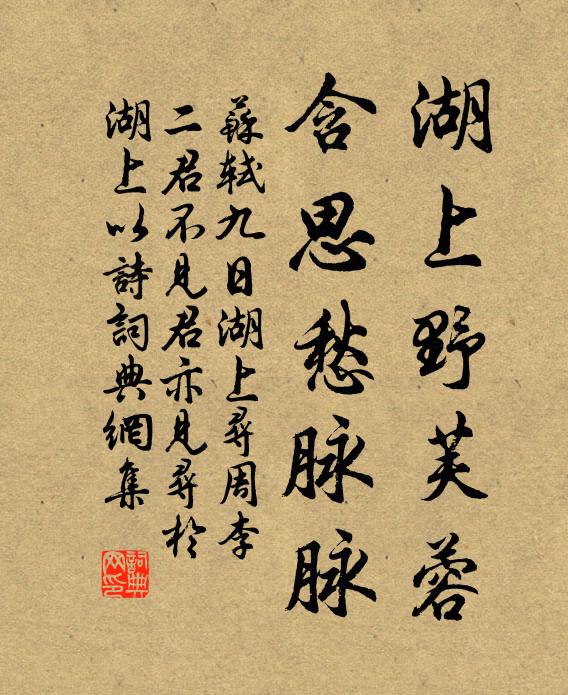 湖上野芙蓉
含思愁脉脉
蘇軾九日湖上尋周李
二君不見君亦見尋於
湖上以詩詞典網集
詞典
网印